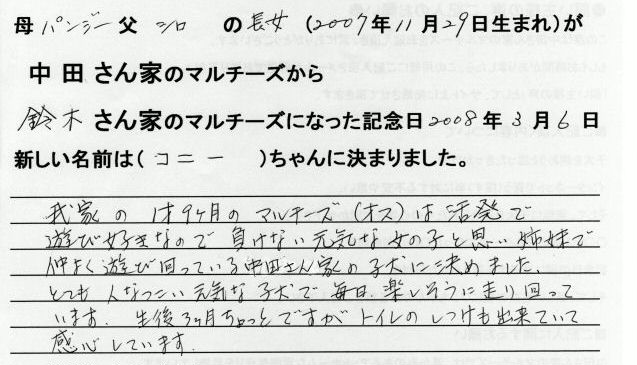 母 パンジー 父 シロ の 長女 (2007年11月29日生まれ)が
中田さん家のマルチーズから
鈴木さん家のマルチーズになった記念日2008年3月6日
新しい名前は( コニー )ちゃんに決まりました。
我家の1才9ヶ月のマルチーズ(オス)は活発で
遊び好きなので負けない元気な女の子と思い姉妹で
仲よく遊び回っている中田さん家の子犬に決めました。
とても人なつこい元気な子犬で毎日、楽しそうに走り回って
います。生後3ヶ月ちょっとですがトイレのしつけも出来ていて
感心しています。